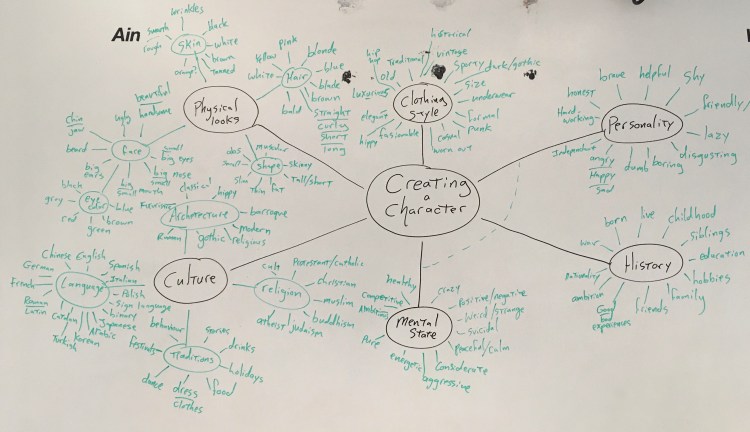 Ain
wrinkles
smooth
rough
Skin
black
white
brown
tanned
orange?
Physical
looks
pink
yellow
blonde
white
Hair
blue
blade
brown
bald
straight
curly
short
long
beautiful
handsome
ugly
chin
jaw
beard
face
small
big eyes
big
ears
big nose
small
big
small mouth
eye
color
black
grey
red
green
brown
blue
muscular
obs
small
shape
skinny
Tall/short
slim
thin
fat
historical
vintage
Traditional
hip
hop
old
Luxurious
Clothing
style
sporty
dark/gothic
size
underwear
formal
punk
casual
worn out
elegant
hippy
fashionable
brave
helpful
shy
honest
Hard-
working
Personality
friendly/
lazy
Independent
angry
Happy
Sad
dumb
boring
disgusting
Creating
a
Character
classical
hippy
Futuristic
Architecture
baroque
modern
religious
gothic
Roman
Culture
Chinese
English
German
Spanish
Italian
French
Language
Polish
Sign language
binary
Japanese
Roman
Latin
Catalan
Arabic
Korean
Turkish
cult
Protestant/catholic
religion
christian
muslim
buddhism
judaism
atheist
behaviour
festivals
Traditions
drinks
holidays
food
dress
clothes
dance
healthy
crazy
Competitive
Ambitious
positive/negative
Weird/strange
Mental
State
suicidal
peaceful/calm
Pure
energetic
Considerate
aggressive
born
live
childhood
siblings
war
History
education
Nationality
hobbies
ambitive
family
Good
bad
experiences
friends